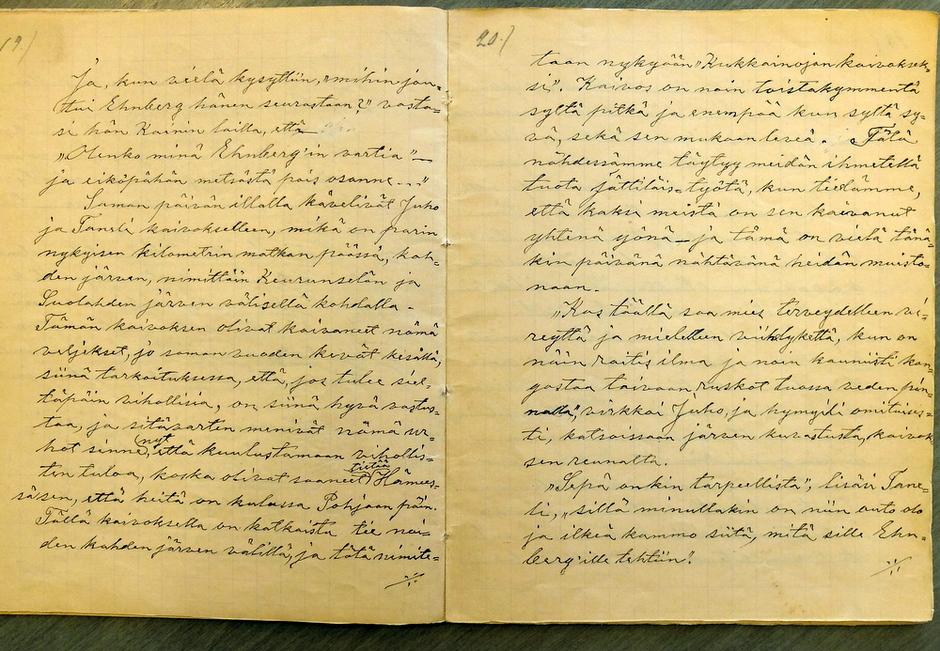 19.)
Ja, kun vielä kysyttiin, „mihin jou-
tui Ehnberg hänen seurastaan?” vasta-
si hän Kainin lailla, että
„Olenko minä Ehnberg'in vartia” —
ja eiköpähän metsästä pois osanne...”
Saman päivän illalla kävelivät Juho
ja Taneli kaivokselleen, mikä on parin
nykyisen kilometrin matkan päässä, kah-
den järven, nimittäin Keurunselän ja
Suolahden järven välisellä kohdalla.
Tämän kaivoksen olivat kaivaneet nämä
veljekset, jo saman vuoden kevät kesällä,
siinä tarkoituksessa, että, jos tulee siel-
täpäin vihollisia, on siinä hyvä vastus-
taa, ja sitävarten menivät nämä ur-
hot sinne, nyt että kuulustamaan vihollis-
ten tuloa, koska olivat saaneet tietää Hämees-
säsen, että heitä on kulussa Pohjaan päin.
Tällä kaivoksella on katkaistu tie näi-
den kahden järven väliltä, ja tätä nimite-
20.)
taan nykyään „Kukkainojan kaivoksek-
si”. Kaivos on noin toistakymmentä
syltä pitkä ja enempää kun syltä sy-
vä, sekä sen mukaan leveä. Tätä
nähdessämme täytyy meidän ihmetellä
tuota jättiläis-työtä, kun tiedämme,
että kaksi meistä on sen kaivanut
yhtenä yönä — ja tämä on vielä tänä-
kin päivänä nähtävänä heidän muisto-
naan.
„Kas täällä saa mies terveydelleen vi-
reyttä ja mielelleen viihdykettä, kun on
näin raitis ilma ja noin kauniisti kan-
gastaa taivaan ruskot tuossa veden pin-
nalla”, virkkoi Juho, ja hymyili omituises-
ti, katsoissaan järven kuvastusta, kaivok-
sen reunalta.
„Sepä onkin tarpeellista”, lisäsi Tane-
li, „sillä minullakin on niin outo olo
ja ilkeä kammo siitä, mitä sille Ehn-
berg'ille tehtiin!